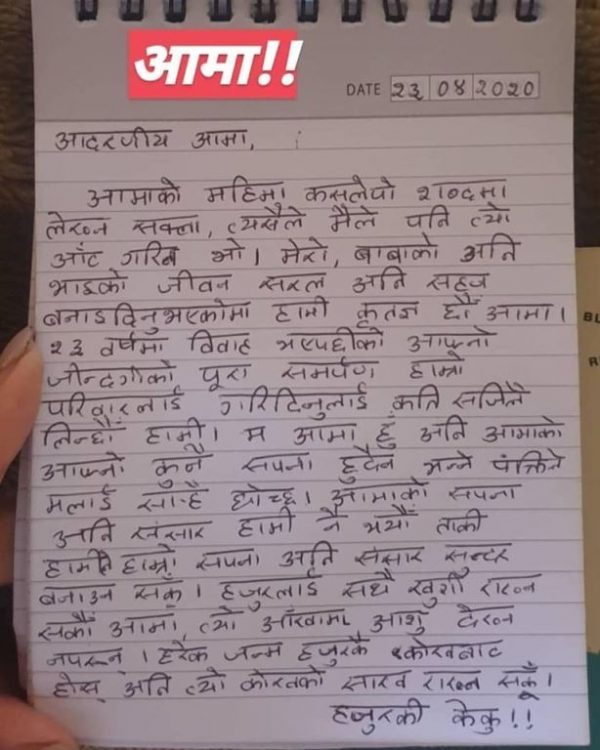 आमा!!
DATE २३ 04 2020
आदरणीय आमा,
आमाको महिमा कसलेपो शब्दमा
लेख्न सक्ला, त्यसैले मैले पनि त्यो
आँट गरिन भो। मेरो, बाबाको अनि
भाइको जीवन सरल अनि सहज
बनाइदिनुभएकोमा हामी कृतज्ञ छौं आमा।
२३ वर्षमा विवाह भएपछीको आफ्नो
जीन्दगीको पूरा समर्पण हाम्रो
परिवारलाई गरिदिनुलाई कति सजिलै
लिन्छौं हामी। म आमा हुँ अनि आमाको
आफ्नो कुनै सपना हुदैन भन्ने पंक्तिले
मलाई साह्रै छोच्छ। आमाको सपना
अनि संसार हामी नै भयौं ताकी
हामीले हाम्रो सपना अनि संसार सुन्दर
बनाउन सकूँ। हजुरलाई सधै खुशी राख्न
सकौं आमा, त्यो आँखामा आशु देख्न
नपरून्। हरेक जन्म हजुरकै कोखबाट
होस् अनि त्यो कोखको साख राख्न सकूँ।
हजुरकी केकु!!